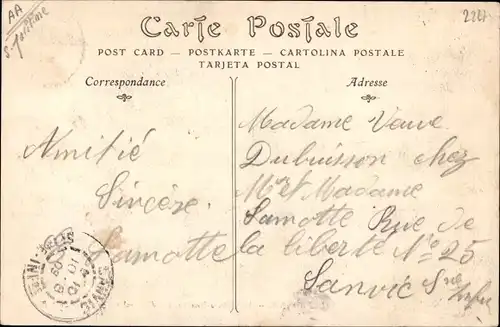 AA
2227
Carte Postale
POST CARD — POSTKARTE — CARTOLINA POSTALE
TARJETA POSTAL
Correspondance
Amitié
Sincère.
Lamotte
Adresse
Madame Veuve
Dubuisson chez
Mr et Madame
Lamotte Rue de
la liberté No 25
Sanvic Sne Infre